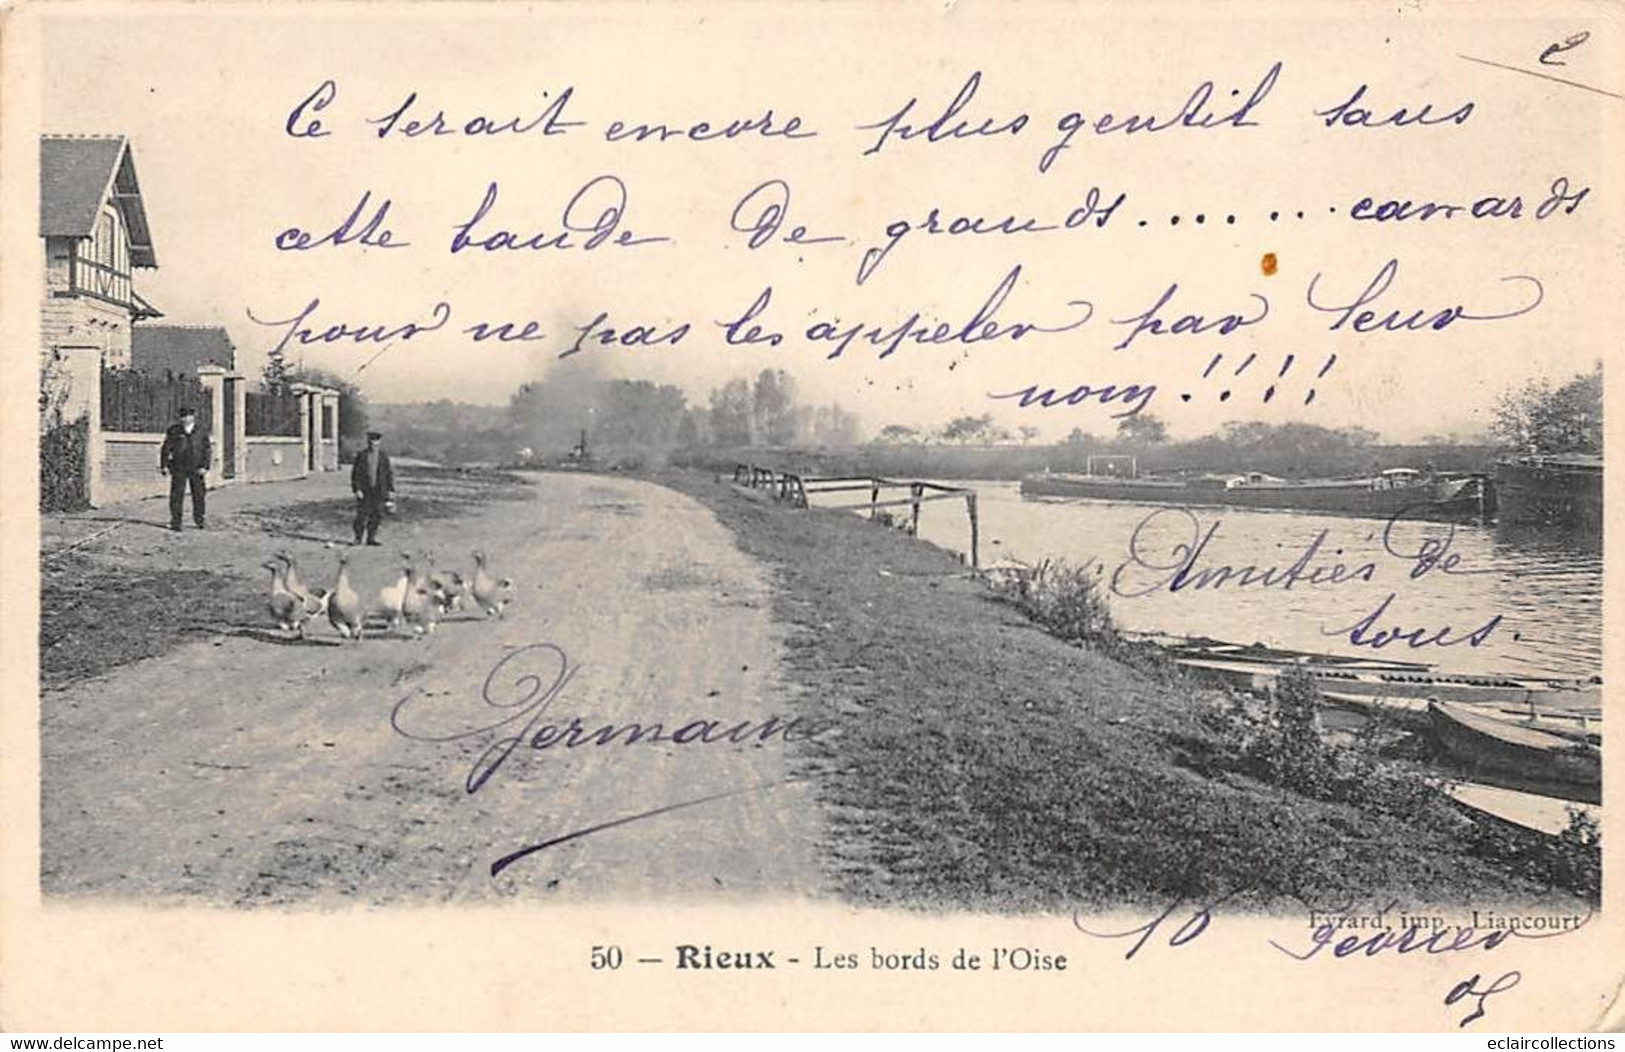 Ce serait encore plus gentil sans
cette bande de grands....... canards
pour ne pas les appeler par leur
nom!!!!
Amitiés de
tous.
Germaine
Eyrard, imp., Liancourt
10 Février
05
50 — Rieux - Les bords de l'Oise
www.delcampe.net
eclaircollections